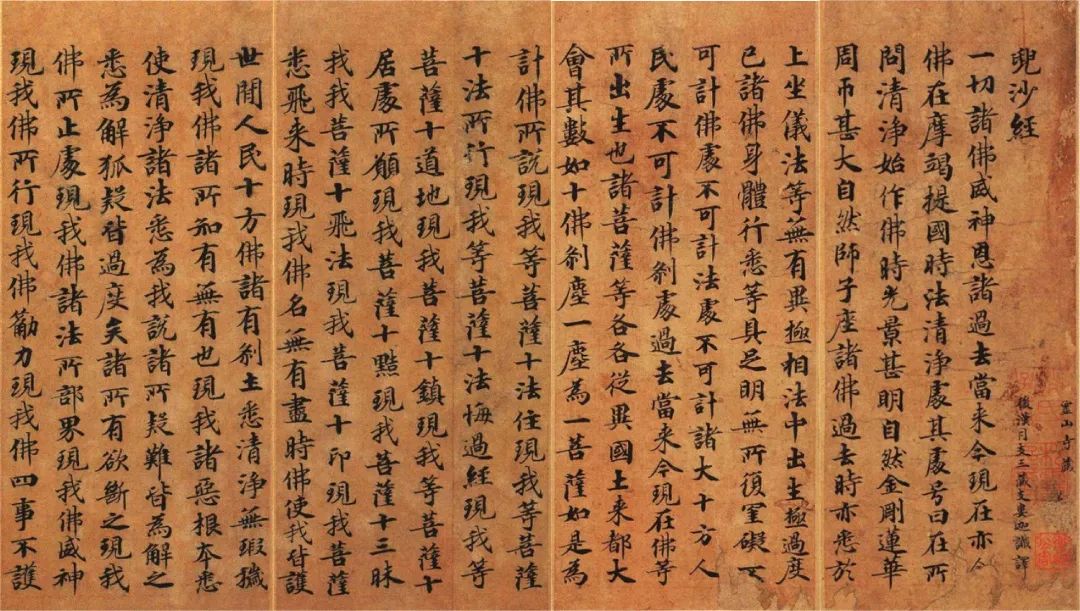 兜沙經
靈山寺藏
後漢月支三藏支婁迦讖譯
一切諸佛威神恩諸過去當来今現在亦尒
佛在摩竭提國時法清淨處其處号曰在所
問清淨始作佛時光景甚明自然金剛蓮華
周帀甚大自然師子座諸佛過去時亦悉於
上坐儀法等無有異極相法中出生極過度
已諸佛身體行悉等具足明無所復罣礙不
可計佛處不可計法處不可計諸大十方人
民處不可計佛剎處過去當来今現在佛等
所出生也諸菩薩等各各從異國土来都大
會其數如十佛剎塵一塵為一菩薩如是為
計佛所說現我等菩薩十法住現我等菩薩
十法所行現我等菩薩十法悔過經現我等
菩薩十道地現我菩薩十鎮現我等菩薩十
居處所願現我菩薩十黠現我菩薩十三昧
我我菩薩十飛法現我菩薩十印現我菩薩
悉飛来時現我佛名無有盡時佛使我皆護
世間人民十方佛諸有剎土悉清淨無瑕穢
現我佛諸所知有無有也現我諸惡根本悉
使清淨諸法悉為我說諸所疑難皆為解之
悉為解狐疑皆過度矣諸所有欲斷之現我
佛所止處現我佛諸法所部界現我佛威神
現我佛所行現我佛力現我佛四事不護